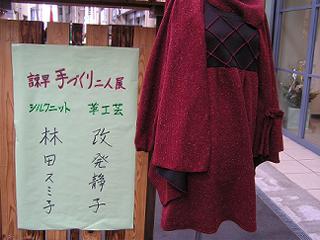 諫早 手づくり二人展
シルクニット 革工芸
林田スミ子
改発静子